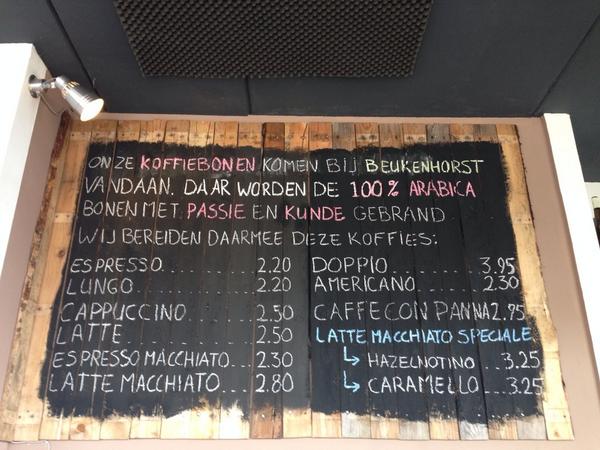 ONZE KOFFIEBONEN KOMEN BIJ BEUKENHORST
VANDAAN. DAAR WORDEN DE 100% ARABICA
BONEN MET PASSIE EN KUNDE GEBRAND
WIJ BEREIDEN DAARMEE DEZE KOFFIES:
ESPRESSO 2.20
LUNGO 2.20
CAPPUCCINO 2.50
LATTE 2.50
ESPRESSO MACCHIATO 2.30
LATTE MACCHIATO 2.80
DOPPIO 3.95
AMERICANO 2.30
CAFFE CON PANNA 2.95
LATTE MACCHIATO SPECIALE
↳ HAZELNOTINO 3.25
↳ CARAMELLO 3.25